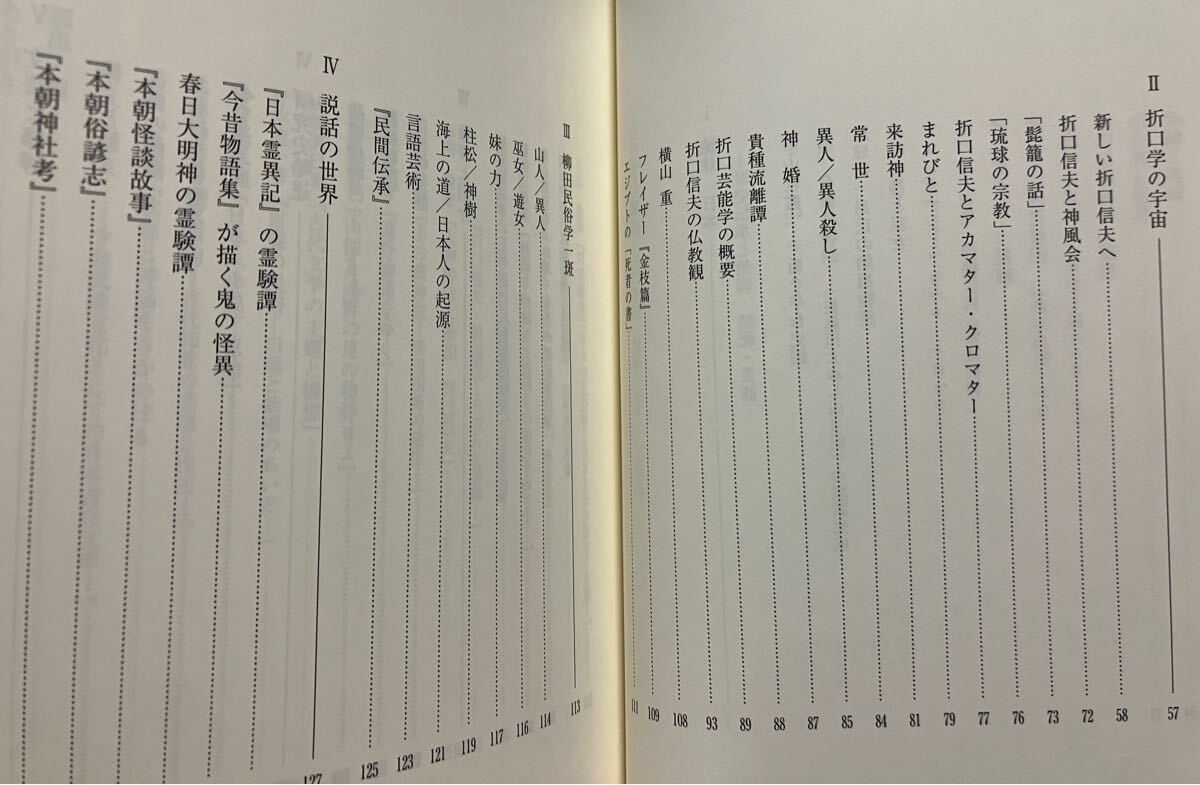 Ⅱ 折口学の宇宙 57
新しい折口信夫へ 58
折口信夫と神風会 72
「髭籠の話」 73
「琉球の宗教」 76
折口信夫とアカマター・クロマター 77
まれびと 79
来訪神 81
常 世 84
異人／異人殺し 85
神 婚 87
貴種流離譚 88
折口芸能学の概要 89
折口信夫の仏教観 93
横山 重 108
フレイザー『金枝篇』 109
エジプトの「死者の書」 111
Ⅲ 柳田民俗学一斑 113
山人／異人 114
巫女／遊女 116
妹の力 117
柱松／神樹 119
海上の道／日本人の起源 121
言語芸術 123
『民間伝承』 125
Ⅳ 説話の世界 127
『日本霊異記』の霊験譚
『今昔物語集』が描く鬼の怪異
春日大明神の霊験譚
『本朝怪談故事』
『本朝俗諺志』
『本朝神社考』